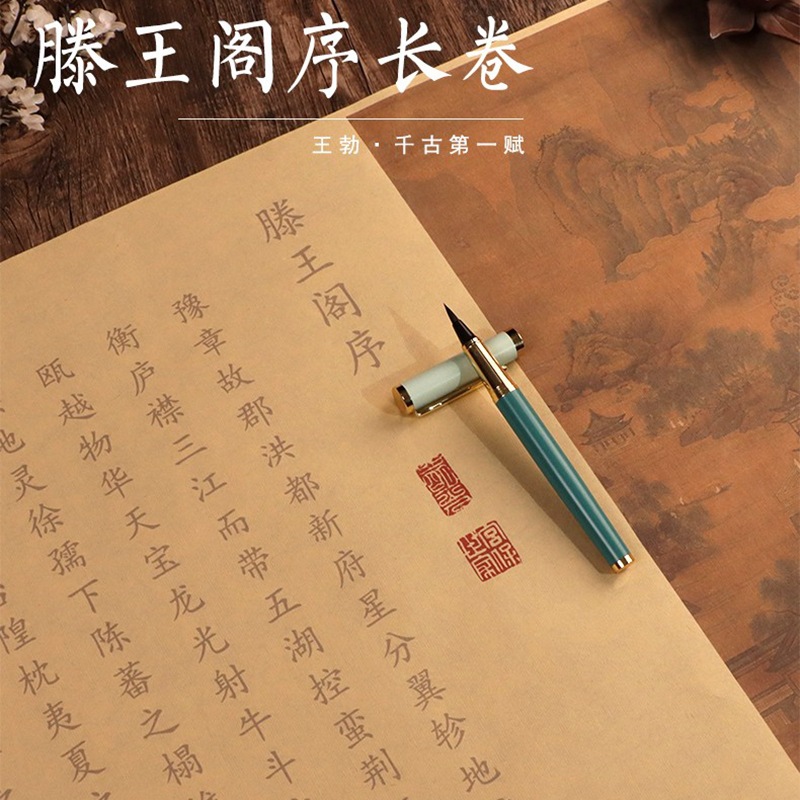 滕王阁序长卷
王勃·千古第一赋
滕王阁序
豫章故郡洪都新府星分翼轸地
衡庐襟三江而带五湖控蛮荆
瓯越物华天宝龙光射牛斗
地灵徐孺下陈蕃之榻
隍枕夷夏